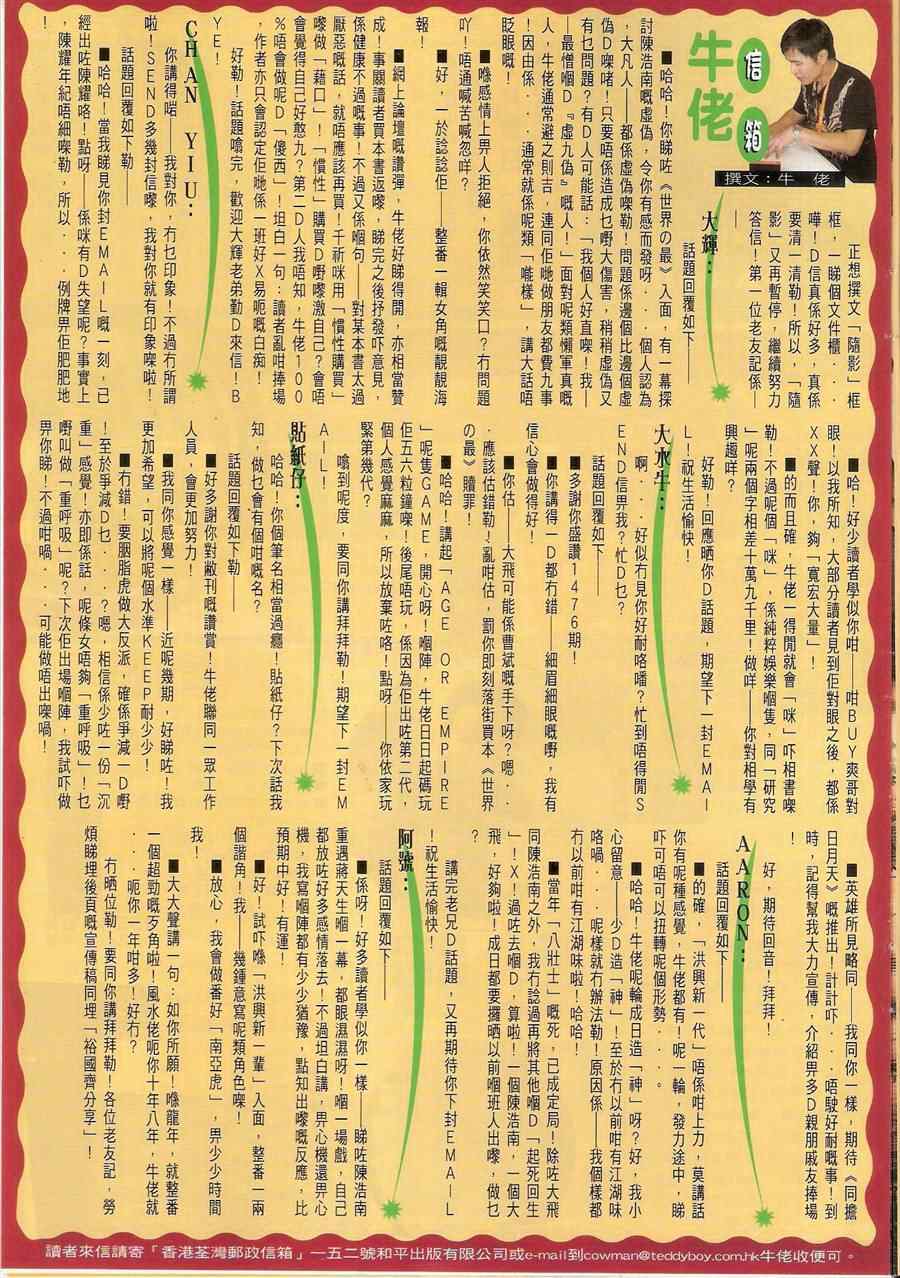 牛佬
信箱
撰文：牛　佬
正想撰文「隨影」框
框，一睇個文件櫃．．．
嘩！D信真係好多，真係
要清一清勒！所以，「隨
影」又再暫停，繼續努力
答信！第一位老友記係—
—
大輝：
話題回覆如下——
■哈哈！你睇咗《世界の最》入面，有一幕探
討陳浩南嘅虛偽，令你有感而發呀．．．個人認為
，大凡人——都係虛偽㗎勒！問題係邊個比邊個虛
偽D㗎啫！只要唔係造成乜嘢大傷害，稍稍虛偽又
有乜問題？有D人可能話：「我個人好直㗎！我—
—最憎嗰D『虛九偽』嘅人！」面對呢類懶軍真嘅
人，牛佬通常避之則吉，連同佢哋做朋友都費九事
！因由係．．．通常就係呢類「嘥樣」，講大話唔
眨眼嘅！
■喺感情上畀人拒絕，你依然笑笑口？冇問題
吖！唔通喊苦喊忽咩？
■好，一於諗諗佢——整番一輯女角嘅靚靚海
報！
■網上論壇嘅讚彈，牛佬好睇得開，亦相當贊
成！事關讀者買本書返嚟，睇完之後抒發吓意見，
係健康不過嘅事！不過又係嗰句——對某本書太過
厭惡嘅話，就唔應該再買！千祈咪用「慣性購買」
嚟做「藉口」！「慣性」購買D嘢嚟激自己？會唔
會覺得自己好憨九？第二D人我唔知，牛佬100
%唔會做呢D「傻西」！坦白一句：讀者亂咁捧場
，作者亦只會認定佢哋係一班好X易呃嘅白痴！
好勒！話題噏完，歡迎大輝老弟勤D來信！B
YE！
CHAN YIU：
你講得啱——我對你，冇乜印象！不過冇所謂
啦！SEND多幾封信嚟，我對你就有印象㗎啦！
話題回覆如下勒——
■哈哈！當我睇見你封EMAIL嘅一刻，己
經出咗陳耀咯！點呀——係咪有D失望呢？事實上
，陳耀年紀唔細㗎勒，所以．．．例牌畀佢肥肥地
！
■哈！好少讀者學似你咁——咁BUY爽哥對
眼！以我所知，大部分讀者見到佢對眼之後，都係
XX聲！你，夠「寬宏大量」！
■的而且確，牛佬一得閒就會「咪」吓相書㗎
勒！不過呢個「咪」，係純粹娛樂嗰隻，同「研究
」呢兩個字相差十萬九千里！做咩——你對相學有
興趣咩？
好勒！回應晒你D話題，期望下一封EMAI
L！祝生活愉快！
大水牛：
啊．．．好似冇見你好耐咯噃？忙到唔得閒S
END信畀我？忙D乜？
話題回覆如下——
■多謝你盛讚1476期！
■你講得一D都冇錯——細眉細眼嘅嘢，我有
信心會做得好！
■你估——大飛可能係曹斌嘅手下呀？嗯．．
．應該估錯勒！亂咁估，罰你即刻落街買本《世界
の最》贖罪！
■哈哈！講起「AGE OR EMPIRE
」呢隻GAME，開心呀！嗰陣，牛佬日日起碼玩
佢五六粒鐘㗎！後尾唔玩，係因為佢出咗第二代，
個人感覺麻麻，所以放棄咗咯！點呀——你依家玩
緊第幾代？
噏到呢度，要同你講拜拜勒！期望下一封EM
AIL！
貼紙仔：
哈哈！你個筆名相當過癮！貼紙仔？下次話我
知，做乜會有個咁嘅名？
話題回覆如下勒——
■好多謝你對敝刊嘅讚賞！牛佬聯同一眾工作
人員，會更加努力！
■我同你感覺一樣——近呢幾期，好睇咗！我
更加希望，可以將呢個水準KEEP耐少少！
■冇錯！要胭脂虎做大反派，確係爭減一D嘢
！至於爭減D乜．．．？嗯，相信係少咗一份「沉
重」感覺！亦即係話，呢條女唔夠「重呼吸」！乜
嘢叫做「重呼吸」呢？下次佢出場嗰陣，我試吓做
畀你睇！不過咁喎．．．可能做唔出㗎喎！
■英雄所見略同——我同你一樣，期待《同擔
日月天》嘅推出！計計吓．．．唔駛好耐嘅事！到
時，記得幫我大力宣傳，介紹畀多D親朋戚友捧場
！
好，期待回音！拜拜！
AARON：
話題回覆如下——
■的確，「洪興新一代」唔係咁上力，莫講話
你有呢種感覺，牛佬都有！呢一輪，發力途中，睇
吓可唔可以扭轉呢個形勢．．．。
■哈哈！牛佬呢輪成日造「神」呀？好，我小
心留意——少D造「神」！至於冇以前咁有江湖味
咯喎．．．呢樣就冇辦法勒！原因係——我個樣都
冇以前咁有江湖味啦！哈哈！
■當年「八壯士」嘅死，已成定局！除咗大飛
同陳浩南之外，我冇諗過再將其他嗰D「起死回生
」！X！過咗去嗰D，算啦！一個陳浩南，一個大
飛，好夠啦！成日都要攞晒以前嗰班人出嚟，做乜
？
講完老兄D話題，又再期待你下封EMAIL
！祝生活愉快！
阿號：
話題回覆如下——
■係呀！好多讀者學似你一樣——睇咗陳浩南
重遇蔣天生嗰一幕，都眼濕濕呀！嗰一場戲，自己
都放咗好多感情落去！不過坦白講，畀心機還畀心
機，我寫嗰陣都有少少猶豫，點知出嚟嘅反應，比
預期中好！有運！
■好！試吓喺「洪興新一輩」入面，整番一兩
個諧角！我——幾鍾意寫呢類角色㗎！
■放心，我會做番好「南亞虎」，畀少少時間
我！
■大大聲講一句：如你所願！喺龍年，就整番
一個超勁嘅歹角啦！風水佬呃你十年八年，牛佬就
．．．呃你一年咁多！好冇？
冇晒位勒！要同你講拜拜勒！各位老友記，勞
煩睇埋後頁嘅宣傳稿同埋「裕國齊分享」！
讀者來信請寄「香港荃灣郵政信箱」一五二號和平出版有限公司或e-mail到cowman@teddyboy.com.hk牛佬收便可。